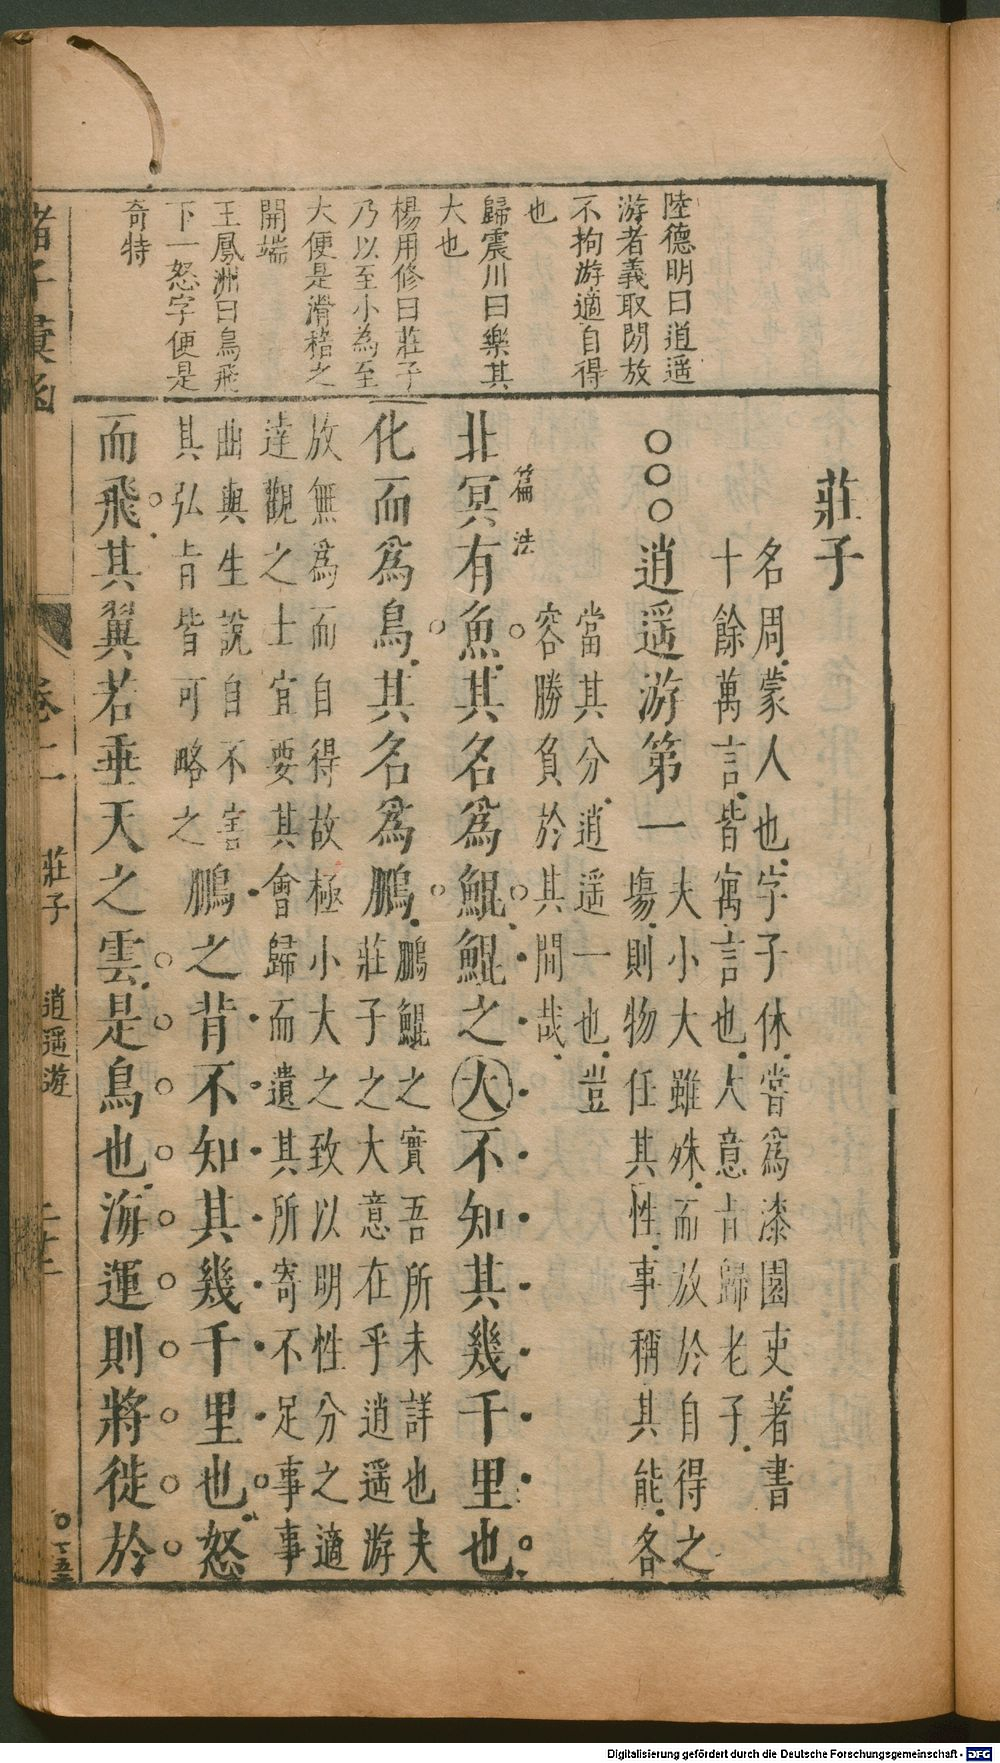 陸德明曰逍遥
游者義取閒放
不拘游適自得
也
歸震川曰樂其
大也
楊用修曰莊子
乃以至小為至
大便是滑稽之
開端
王鳳洲曰鳥飛
下一怒字便是
奇特
莊子
名周蒙人也字子休嘗爲漆園吏著書
十餘萬言皆寓言也大意旨歸老子
○○○逍遥游第一
夫小大雖殊而放於自得之
塲則物任其性事稱其能各
當其分逍遥一也豈
容勝負於其間哉
篇法
北冥有魚其名爲鯤鯤之大不知其幾千里也
化而爲鳥其名爲鵬
鵬鯤之實吾所未詳也夫
莊子之大意在乎逍遥游
放無爲而自得故極小大之致以明性分之適
達觀之士宜要其會歸而遺其所寄不足事事
曲與生說自不害
其弘旨皆可略之
鵬之背不知其幾千里也怒
而飛其翼若垂天之雲是鳥也海運則將徙於
諸子彙函
卷二
莊子
逍遥游
Digitalisierung gefördert durch die Deutsche Forschungsgemeinschaft - DFG